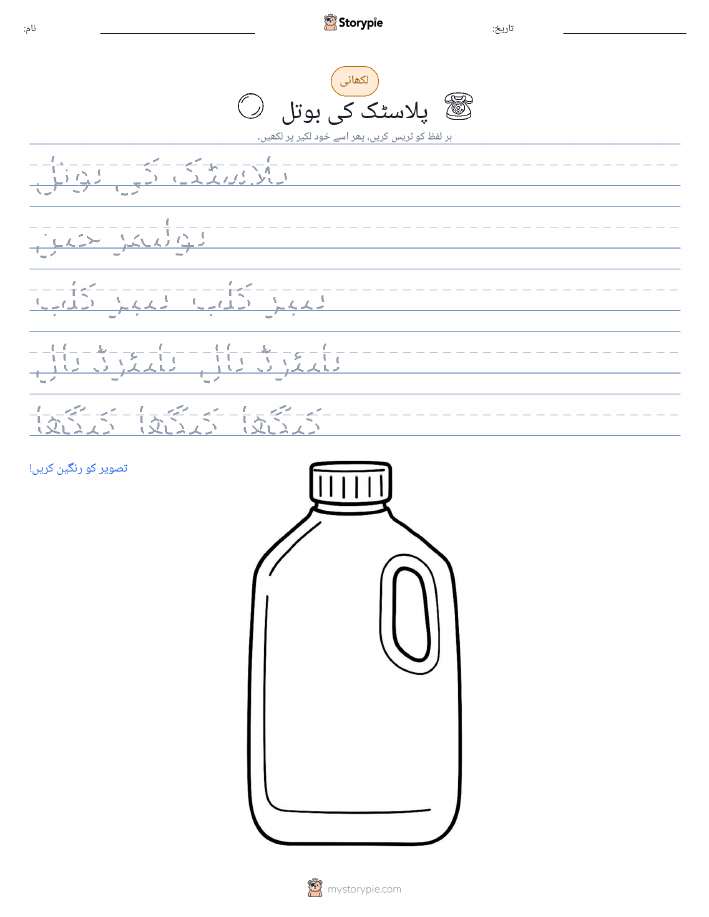 نام:
Storypie
تاریخ:
لکھائی
پلاسٹک کی بوتل
ہر لفظ کو ٹریس کریں، پھر اسے خود لکیر پر لکھیں۔
پلاسٹک کی بوتل
پولیمر چین
بلیئرڈ بال بلیئرڈ بال
کنگھا کنگھا کنگھا
تصویر کو رنگین کریں!
mystorypie.com